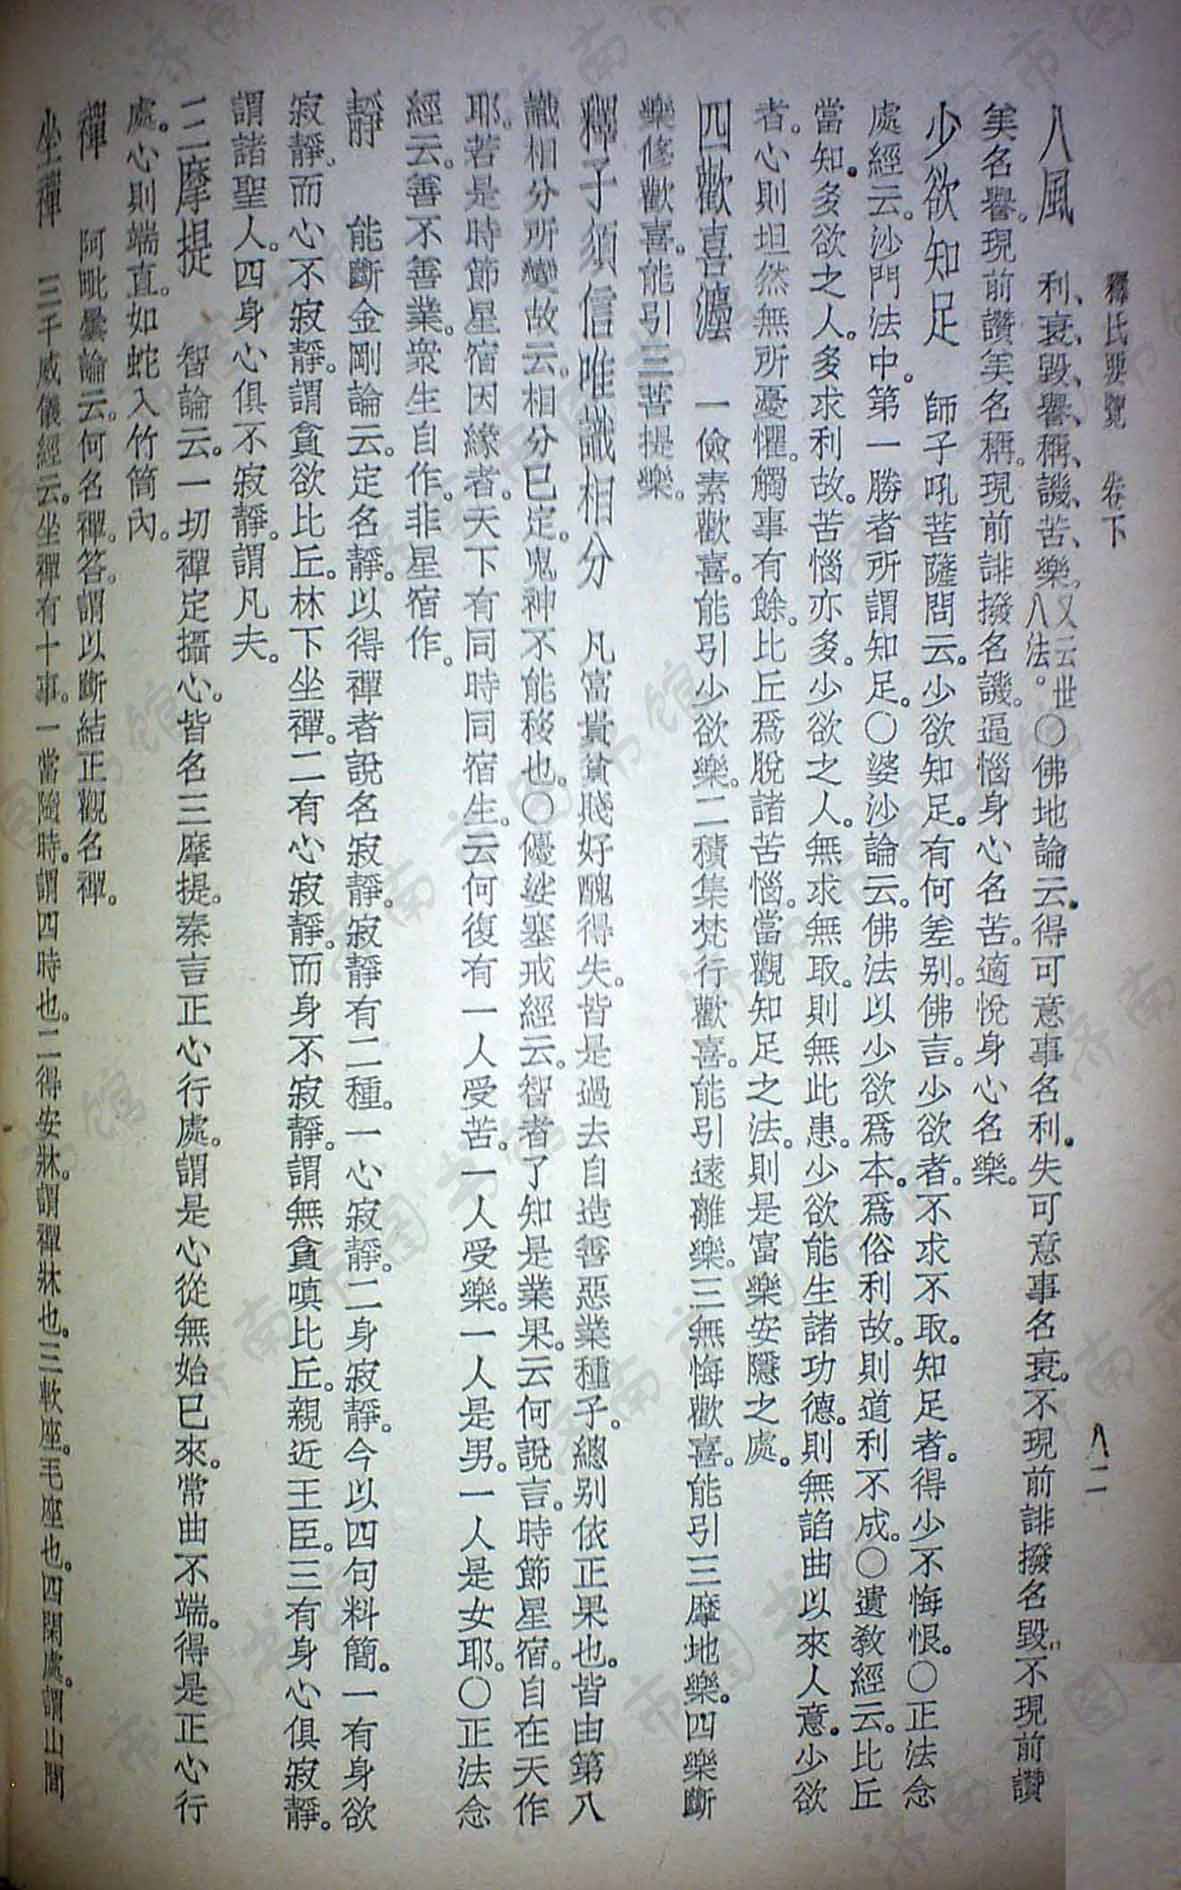 釋氏要覽　卷下　八二
八風　利、衰、毀、譽、稱、譏、苦、樂。又云世八法。〇佛地論云。得可意事名利。失可意事名衰。不現前誹撥名毀。不現前讚
美名譽。現前讚美名稱。現前誹撥名譏。逼惱身心名苦。適悅身心名樂。
少欲知足　師子吼菩薩問云。少欲知足。有何差別。佛言。少欲者。不求不取。知足者。得少不悔恨。〇正法念
處經云。沙門法中。第一勝者所謂知足。〇婆沙論云。佛法以少欲爲本。爲俗利故。則道利不成。〇遺教經云。比丘
當知。多欲之人。多求利故。苦惱亦多。少欲之人。無求無取。則無此患。少欲能生諸功德。則無諂曲以來人意。少欲
者。心則坦然無所憂懼。觸事有餘。比丘爲脫諸苦惱。當觀知足之法。則是富樂安隱之處。
四歡喜灋　一儉素歡喜。能引少欲樂。二積集梵行歡喜。能引遠離樂。三無悔歡喜。能引三摩地樂。四樂斷
樂修歡喜。能引三菩提樂。
釋子須信唯識相分　凡富貴貧賤好醜得失。皆是過去自造善惡業種子。總别依正果也。皆由第八
識相分所變故云。相分已定。鬼神不能移也。〇優娑塞戒經云。智者了知是業果。云何說言。時節星宿。自在天作
耶。若是時節星宿因緣者。天下有同時同宿生。云何復有一人受苦。一人受樂。一人是男。一人是女耶。〇正法念
經云。善不善業。衆生自作。非星宿作。
靜　能斷金剛論云。定名靜。以得禪者說名寂靜。寂靜有二種。一心寂靜。二身寂靜。今以四句料簡。一有身欲
寂靜。而心不寂靜。謂貪欲比丘。林下坐禪。二有心寂靜。而身不寂靜。謂無貪嗔比丘。親近王臣。三有身心俱寂靜。
謂諸聖人。四身心俱不寂靜。謂凡夫。
三摩提　智論云。一切禪定攝心。皆名三摩提。秦言正心行處。謂是心從無始已來。常曲不端。得是正心行
處。心則端直。如蛇入竹筒內。
禪　阿毗曇論云。何名禪。答。謂以斷結正觀名禪。
坐禪　三千威儀經云。坐禪有十事。一當隨時。謂四時也。二得安牀。謂禪牀也。三軟座。毛座也。四閑處。謂山間